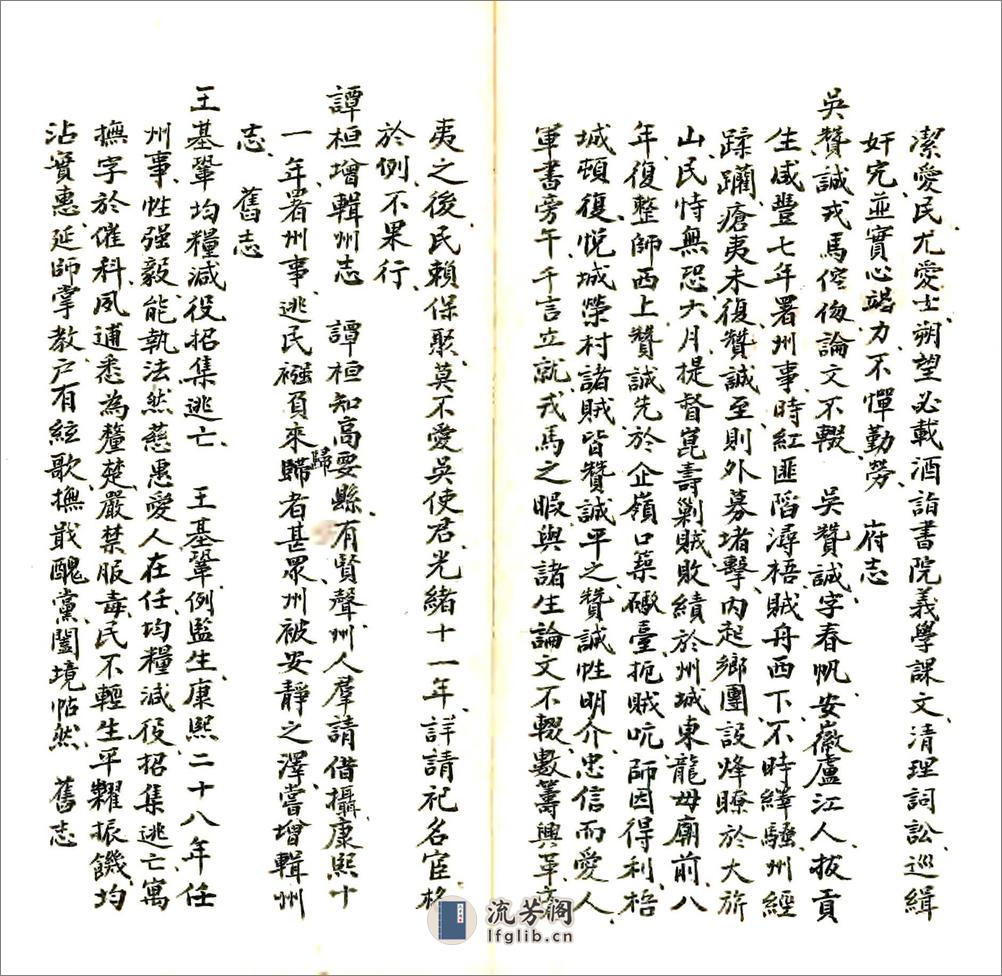 潔愛民尤愛士朔望必載酒詣書院義學課文清理詞訟巡緝
奸宄並實心竭力不憚勤勞　府志
吳贊誠戎馬倥傯論文不輟　吳贊誠字春帆安徽廬江人拔貢
生咸豐七年署州事時紅匪陷潯梧賊舟西下不時繹騷州經
蹂躪瘡夷未復贊誠至則外募堵擊內起鄉團設烽瞭於大旂
山民恃無恐六月提督崑壽剿賊敗績於州城東龍母廟前八
年復整師西上贊誠先於企嶺口築礮臺扼賊吭師因得利梧
城頓復悅城榮村諸賊皆贊誠平之贊誠性明介忠信而愛人
軍書旁午千言立就戎馬之暇與諸生論文不輟數籌興革
夷之後民賴保聚莫不愛吳使君光緒十一年詳請祀名宦格
於例不果行
譚桓增輯州志　譚桓知高要縣有賢聲州人羣請借攝康熙十
一年署州事逃民襁負來歸者甚眾州被安靜之澤嘗增輯州
歸
志　舊志
王基鞏均糧減役招集逃亡　王基鞏例監生康熙二十八年任
州事性强毅能執法然慈惠愛人在任均糧減役招集逃亡寓
撫字於催科夙逋悉為釐楚嚴禁服毒民不輕生平糶振饑均
沾實惠延師掌教戶有絃歌撫戢醜黨闔境帖然　舊志
流芳閣
lfglib.cn